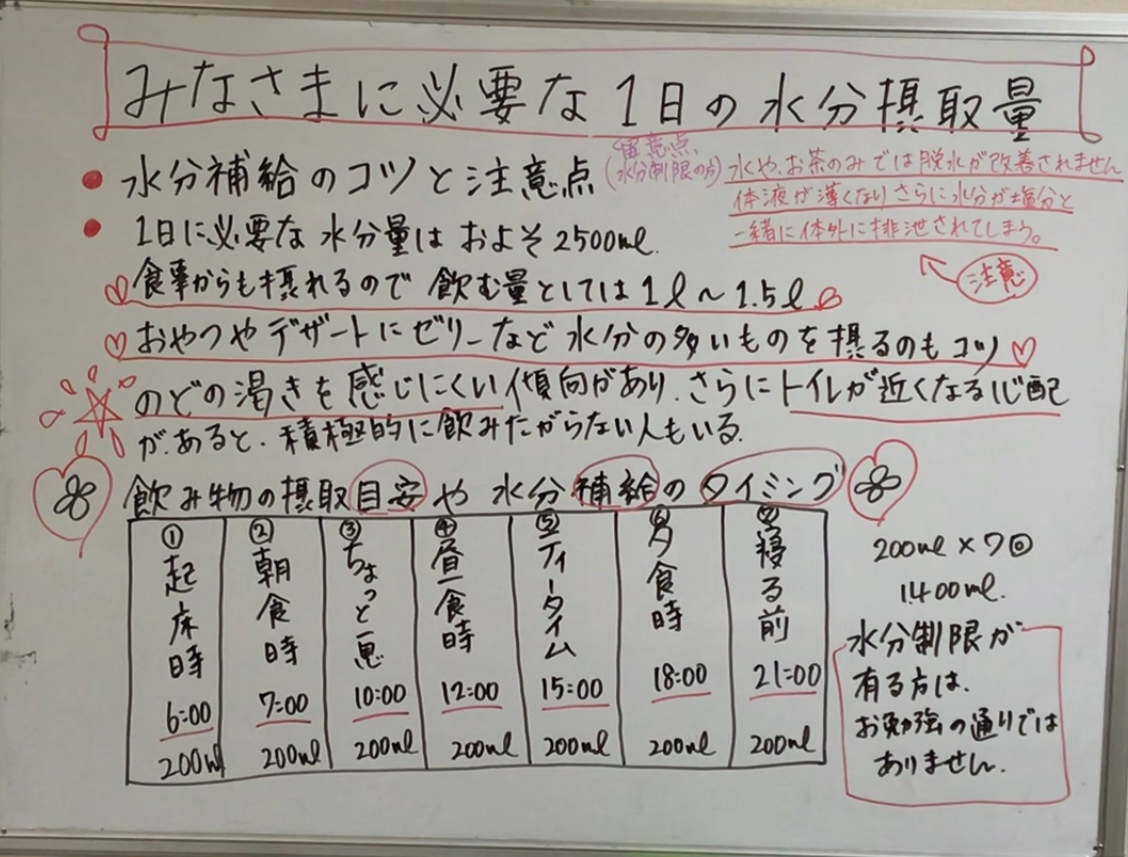 みなさまに必要な1日の水分摂取量
● 水分補給のコツと注意点
留意点
(水分制限の方)
水や、お茶のみでは脱水が改善されません
体液が薄くなりさらに水分が塩分と
一緒に体外に排泄されてしまう。
注意
● 1日に必要な水分量はおよそ2500ml.
♡食事からも摂れるので 飲む量としては1l〜1.5l♡
♡おやつやデザートにゼリーなど水分の多いものを摂るのもコツ♡
のどの渇きを感じにくい傾向があり、さらにトイレが近くなる心配
があると、積極的に飲みたがらない人もいる.
飲み物の摂取目安や 水分補給のタイミング
①起床時 6:00 200ml
②朝食時 7:00 200ml
③ちょっと息 10:00 200ml
④昼食時 12:00 200ml
⑤ティータイム 15:00 200ml
⑥夕食時 18:00 200ml
⑦寝る前 21:00 200ml
200ml×7回
1400ml.
水分制限が
有る方は、
お勉強の通りでは
ありません.